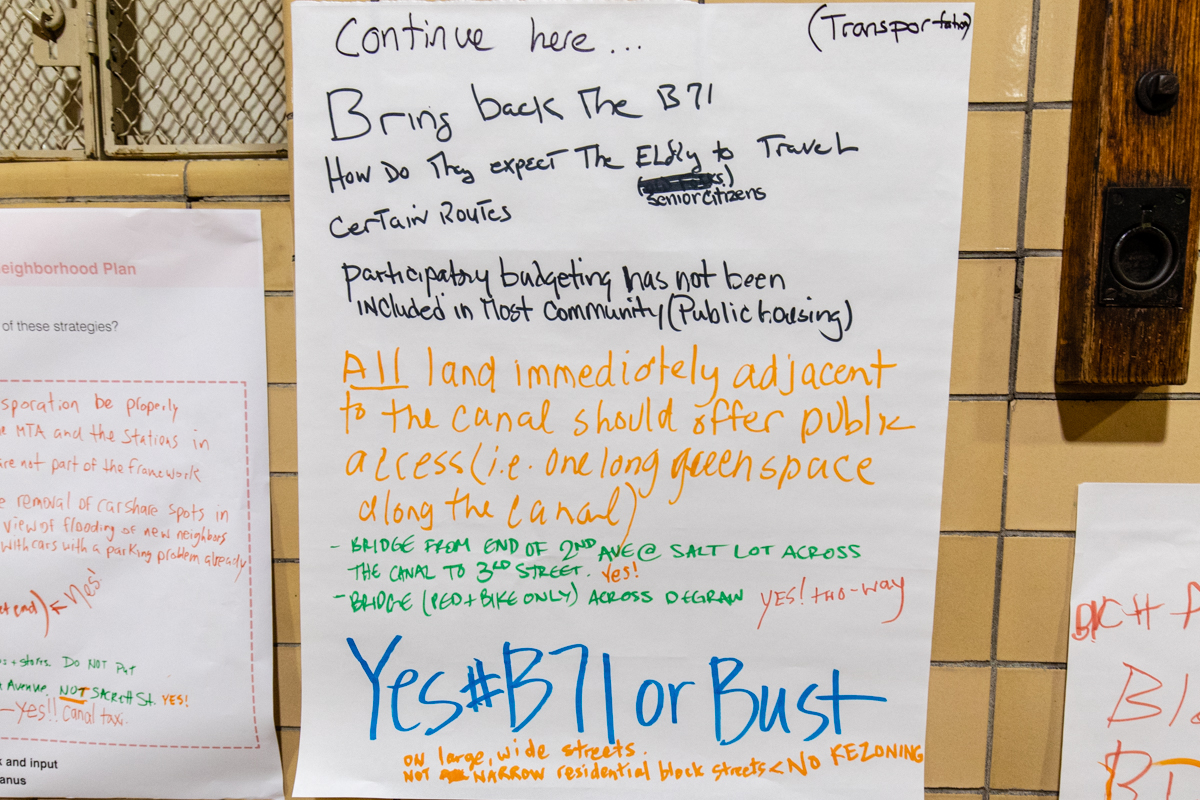 Continue here ...
(Transportation)
Bring back The B71
How Do They expect The ELdly to Travel
senior citizens
certain Routes
participatory budgeting has not been
included in Most Community (Public housing)
All land immediately adjacent
to the canal should offer public
access (i.e. one long green space
along the canal)
- BRIDGE FROM END OF 2ND AVE @ SALT LOT ACROSS
THE CANAL TO 3RD STREET. Yes!
- BRIDGE (PED + BIKE ONLY) ACROSS DEGRAW YES! two-way
Yes #B71 or Bust
ON large, wide streets.
NOT NARROW residential block streets < No REZONING
eighborhood Plan
of these strategies?
sporation be properly
MTA and the stations in
are not part of the framework
removal of carshare spots in
view of flooding of new neighbors
with cars with a parking problem already
end) Yes!
+ stores. DO NOT PUT
Avenue. NOT SACKETT St. YES!
- YES!! Canal taxi.
k and input
anus